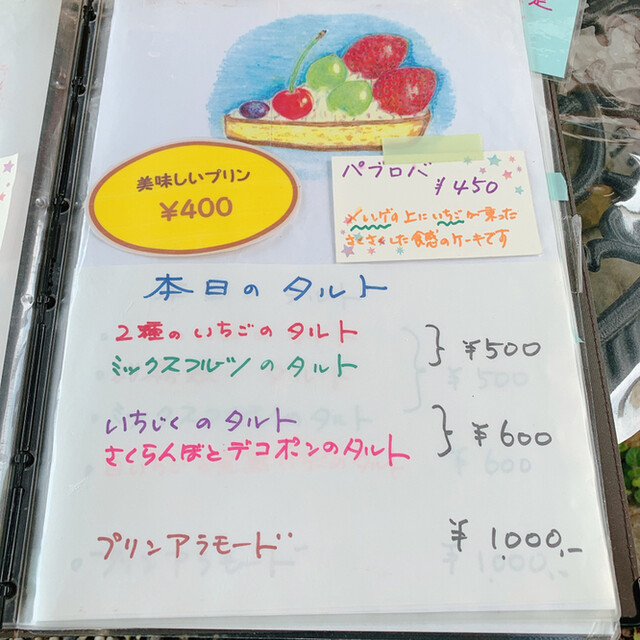 美味しいプリン
¥400
パブロバ
¥450
メレンゲの上にいちごが乗った
さくさくした食感のケーキです
本日のタルト
2種のいちごのタルト
ミックスフルーツのタルト
¥500
いちじくのタルト
さくらんぼとデコポンのタルト
¥600
プリンアラモード
¥1000,-